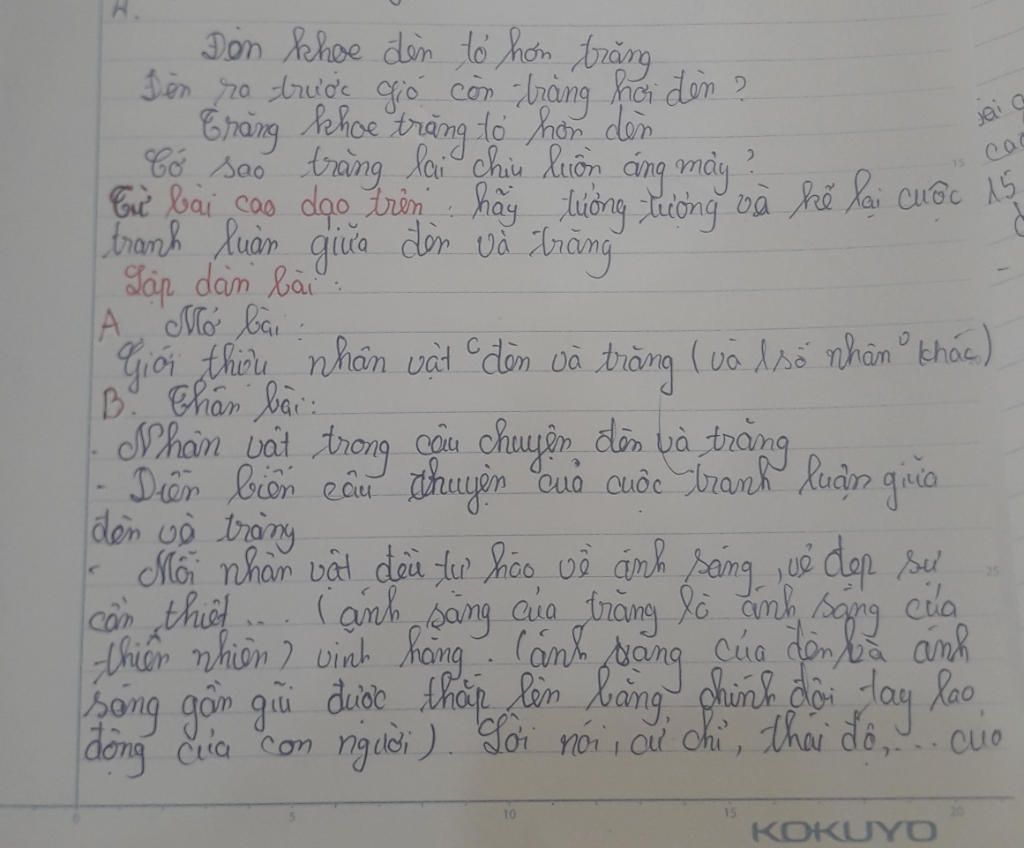 A.
Đèn khoe đèn tỏ hơn trăng
Đèn ra trước gió còn trăng hơi đèn?
Trăng khoe trăng tỏ hơn đèn
Cớ sao trăng lại chịu luồn áng mây?
Từ bài cao dạo trên. hãy tưởng tượng và kể lại cuộc
tranh luận giữa đèn và trăng
Lập dàn bài:
A Mở bài:
Giới thiệu nhân vật đèn và trăng (và 1 số nhân khác)
B. Thân bài:
. Nhân vật trong câu chuyện đèn và trăng
- Diễn biến câu chuyện của cuộc tranh luận giữa
đèn và trăng
- Mỗi nhân vật đều tự hào về ánh sáng, vẻ đẹp sự
cần thiết... (ánh sáng của trăng là ánh sáng của
thiên nhiên) vĩnh hằng. (ánh sáng của đèn là ánh
sáng gần gũi được thắp lên bằng chính đôi tay lao
động của con người). Lời nói, cử chỉ, thái độ,... của
15
25
5
10
15
20
KOKUYO